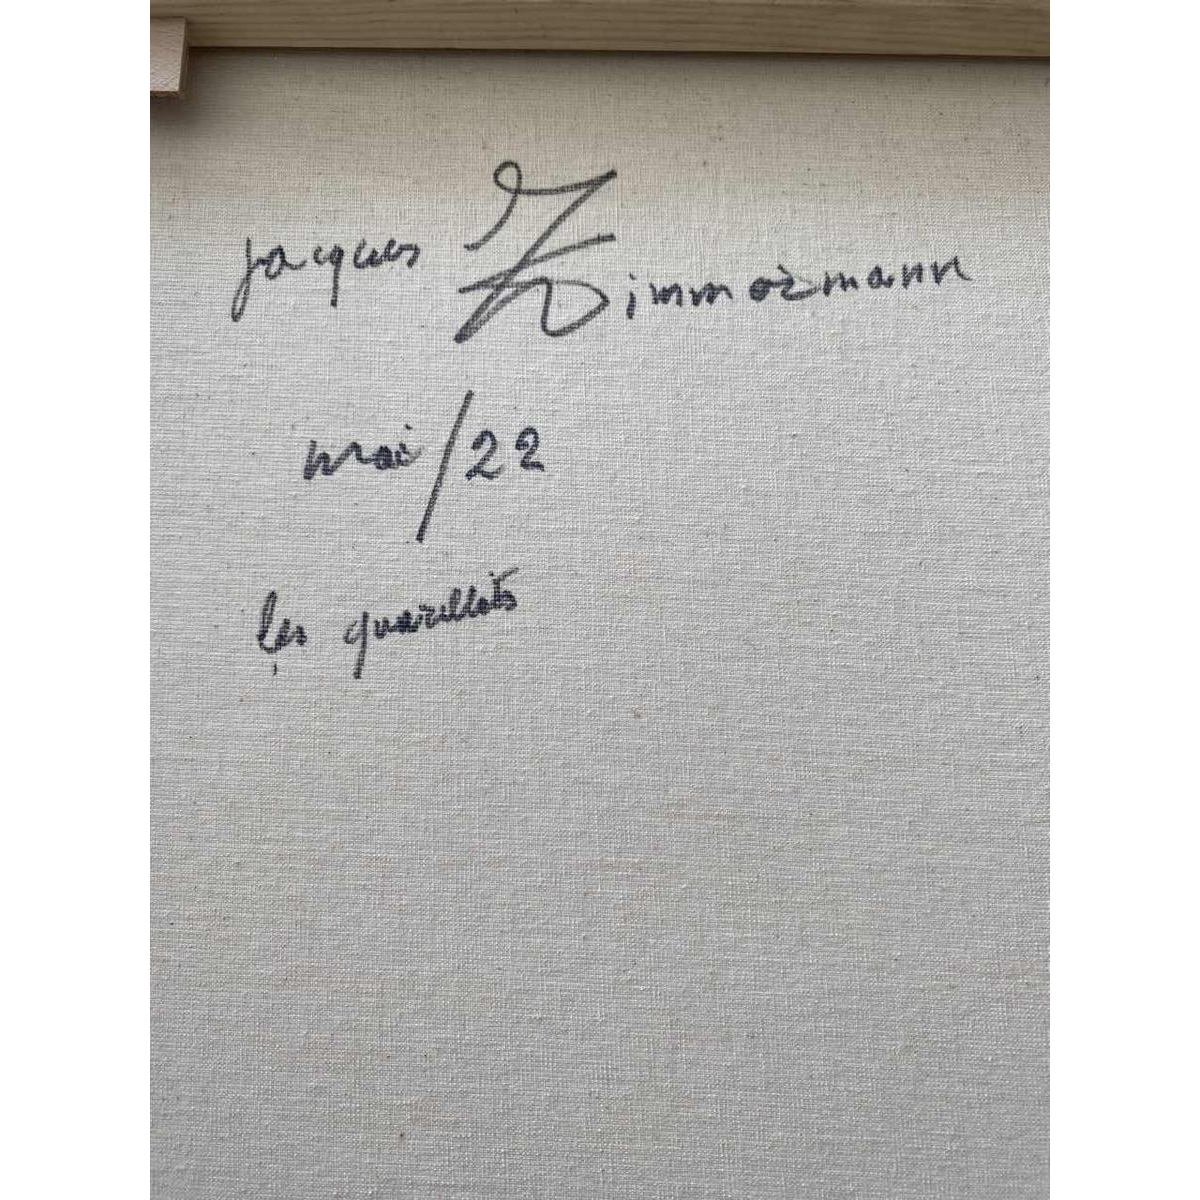 jacques Zimmermann
mai/22
les quarellots